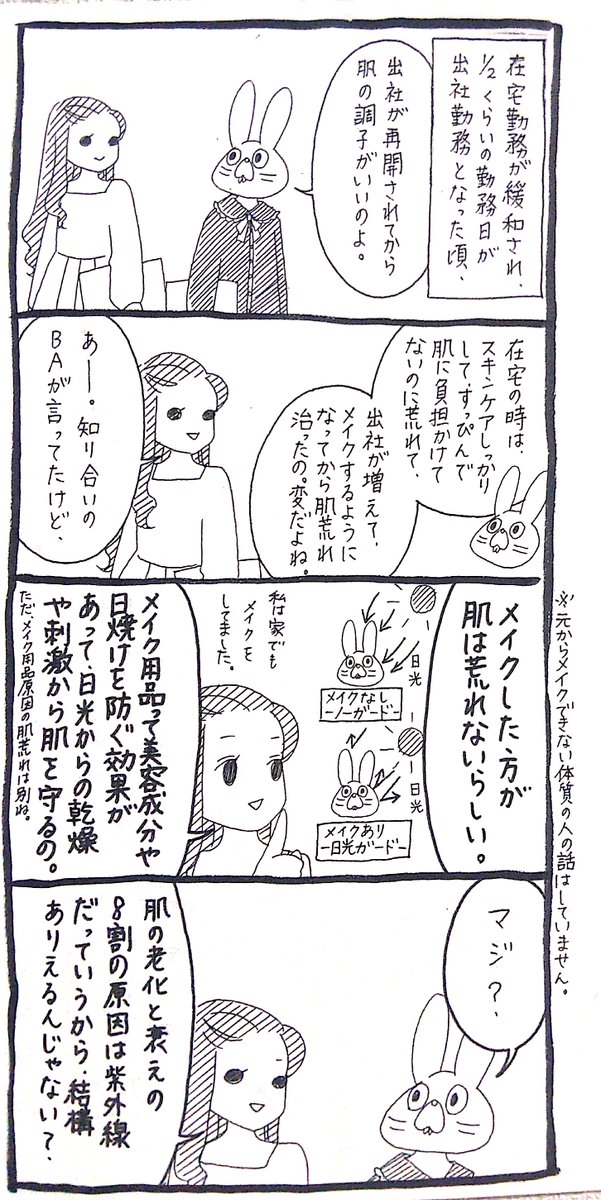 在宅勤務が緩和され、
1/2くらいの勤務日が
出社勤務となった頃、
出社が再開されてから
肌の調子がいいのよ。
在宅の時は、
スキンケアしっかり
して、すっぴんで
肌に負担かけて
ないのに荒れて、
出社が増えて、
メイクするように
なってから肌荒れ
治ったの。変だよね。
あー。知り合いの
BAが言ってたけど、
※元からメイクできない体質の人の話はしていません。
メイクした方が
肌は荒れないらしい。
日光
メイクなし
ーノーガードー
日光
メイクあり
ー日光ガードー
私は家でも
メイクを
してました。
メイク用品って美容成分や
日焼けを防ぐ効果が
あって、日光からの乾燥
や刺激から肌を守るの。
ただ、メイク用品原因の肌荒れは別ね。
マジ?
肌の老化と衰えの
8割の原因は紫外線
だっていうから、結構
ありえるんじゃない?